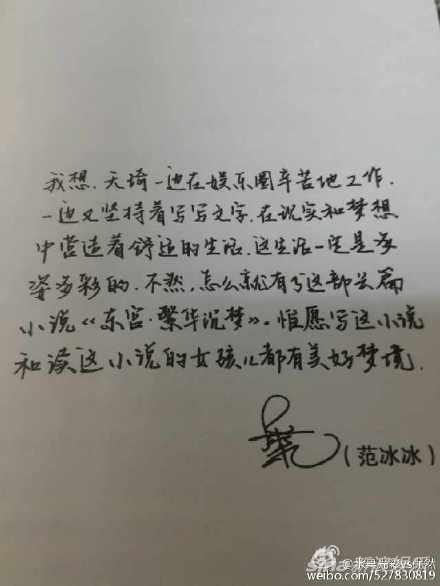 我想，天琦一边在娱乐圈辛苦地工作，
一边又坚持着写写文字，在现实和梦想
中营造着舒适的生活，这生活一定是多
姿多彩的，不然，怎么就有了这部长篇
小说《东宫·繁华沉梦》。惟愿写这小说
和读这小说的女孩儿都有美好梦境.
(范冰冰)
weibo.com/527830819